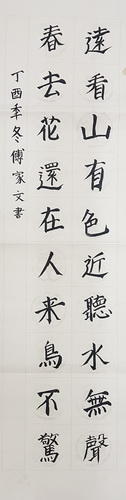 遠看山有色近聽水無聲
春去花還在人来鳥不驚
丁酉年冬傅家文書